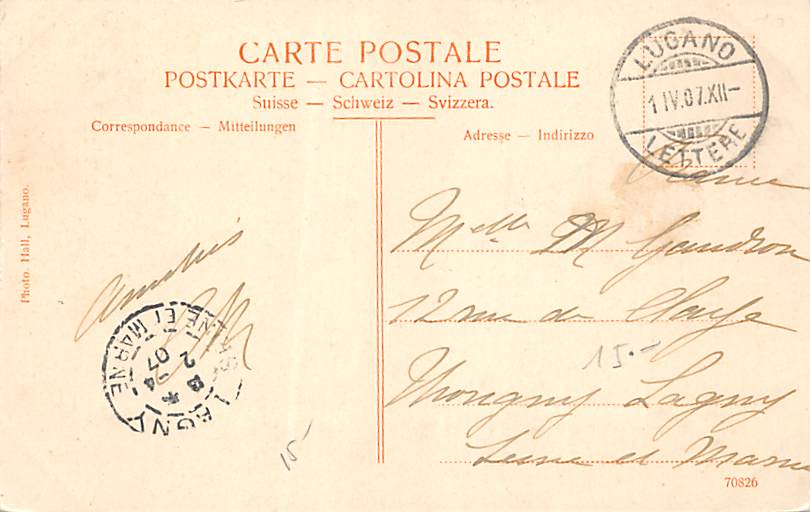 CARTE POSTALE
POSTKARTE — CARTOLINA POSTALE
Suisse — Schweiz — Svizzera.
Correspondance — Mitteilungen
Adresse — Indirizzo
LUGANO
1 IV.07.XII—
LETTERE
France
Melle M Gaudron
12 rue de Claye
Thorigny Lagny
Seine et Marne
15.-
Amitiés
LAGNY
2 -4
07
NE ET MARNE
15-
Photo. Hall, Lugano.
70826